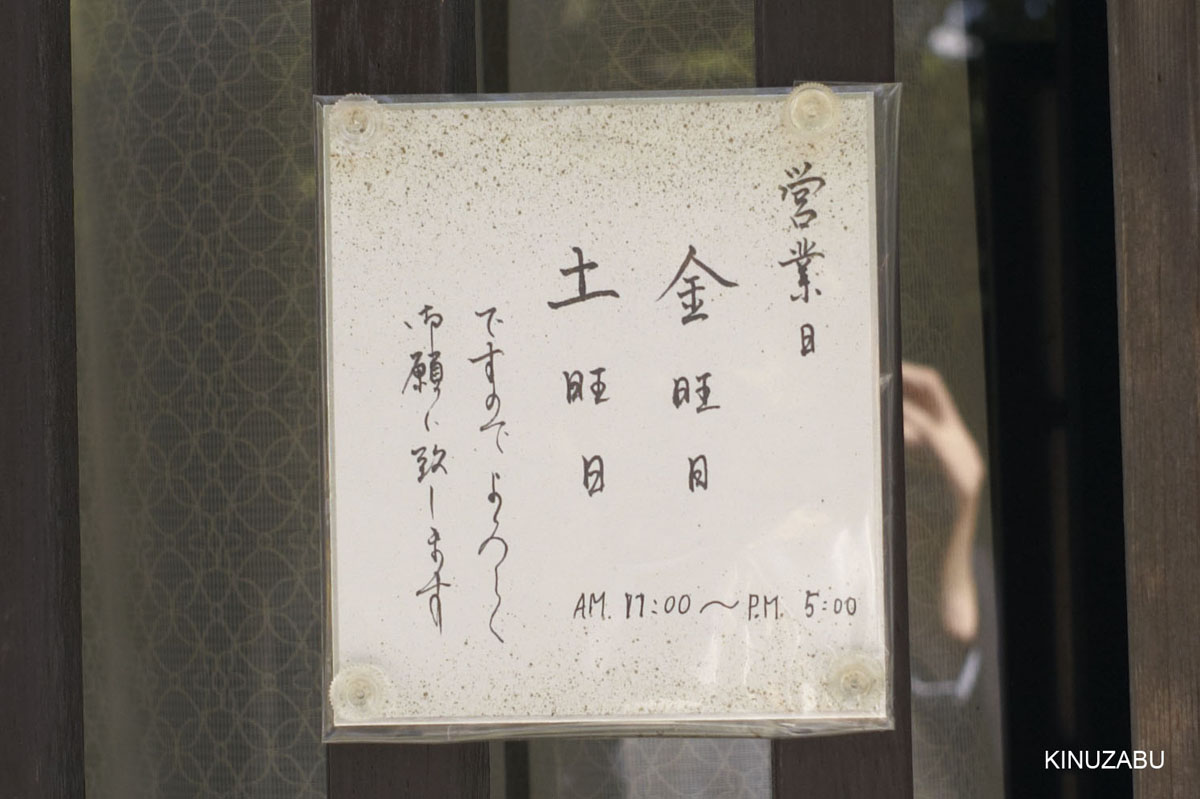 営業日
金旺日
土旺日
AM. 11:00～P.M. 5:00
ですのでよろしく
御願い致します
KINUZABU